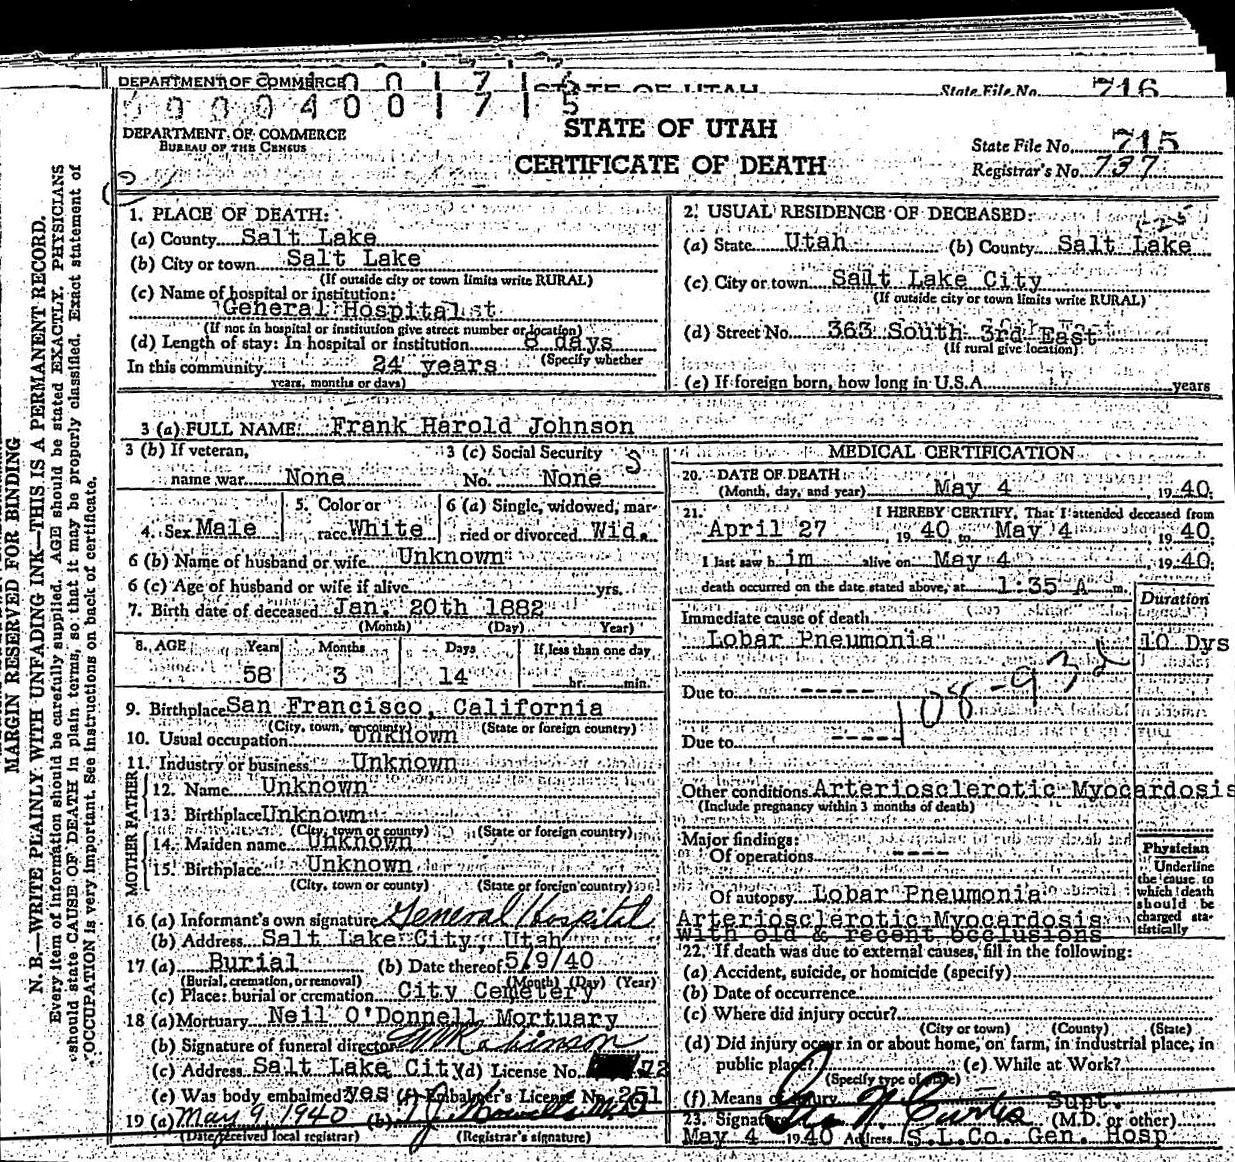 DEPARTMENT OF COMMERCE
STATE OF UTAH
State File No. 716
0 0 0 0 4 0 0 1 7 1 5
DEPARTMENT OF COMMERCE
BUREAU OF THE CENSUS
STATE OF UTAH
CERTIFICATE OF DEATH
State File No. 715
Registrar's No. 737
MARGIN RESERVED FOR BINDING
N. B.—WRITE PLAINLY WITH UNFADING INK—THIS IS A PERMANENT RECORD.
Every item of information should be carefully supplied. AGE should be stated EXACTLY. PHYSICIANS
should state CAUSE OF DEATH in plain terms, so that it may be properly classified. Exact statement of
OCCUPATION is very important. See instructions on back of certificate.
1. PLACE OF DEATH:
(a) County Salt Lake
(b) City or town Salt Lake
(If outside city or town limits write RURAL)
(c) Name of hospital or institution:
General Hospital
(If not in hospital or institution give street number or location)
(d) Length of stay: In hospital or institution 8 days
(Specify whether
In this community 24 years
years, months or days)
2. USUAL RESIDENCE OF DECEASED:
(a) State Utah (b) County Salt Lake
(c) City or town Salt Lake City
(If outside city or town limits write RURAL)
(d) Street No. 363 South 3rd East
(If rural give location)
(e) If foreign born, how long in U.S.A. years
3 (a) FULL NAME: Frank Harold Johnson
3 (b) If veteran, name war None
3 (c) Social Security No. None
4. Sex Male
5. Color or race White
6 (a) Single, widowed, married or divorced Wid.
6 (b) Name of husband or wife Unknown
6 (c) Age of husband or wife if alive yrs.
7. Birth date of deceased Jan. 20th 1882
(Month) (Day) Year)
8. AGE Years Months Days If less than one day
58 3 14 hr. min.
9. Birthplace San Francisco, California
(City, town, or county) (State or foreign country)
10. Usual occupation Unknown
11. Industry or business Unknown
MOTHER FATHER
12. Name Unknown
13. Birthplace Unknown
(City, town or county) (State or foreign country)
14. Maiden name Unknown
15. Birthplace Unknown
(City, town or county) (State or foreign country)
16 (a) Informant's own signature General Hospital
(b) Address Salt Lake City, Utah
17 (a) Burial (b) Date thereof 5/9/40
(Burial, cremation, or removal) (Month) (Day) (Year)
(c) Place: burial or cremation City Cemetery
18 (a) Mortuary Neil O'Donnell Mortuary
(b) Signature of funeral director
(c) Address Salt Lake City (d) License No. 72
(e) Was body embalmed yes (f) Embalmer's License No. 251
19 (a) May 9, 1940 (b)
(Date received local registrar) (Registrar's signature)
MEDICAL CERTIFICATION
20. DATE OF DEATH
(Month, day, and year) May 4, 1940
21. I HEREBY CERTIFY, That I attended deceased from
April 27 1940 to May 4, 1940
I last saw h im alive on May 4, 1940
death occurred on the date stated above, at 1:35 A m.
Duration
Immediate cause of death
Lobar Pneumonia 10 Dys
Due to -----
108-93d
Due to ----
Other conditions Arteriosclerotic Myocardosis
(Include pregnancy within 3 months of death)
Major findings:
Of operations ----
Of autopsy Lobar Pneumonia
Arteriosclerotic Myocardosis
with old & recent occlusions
Physician
Underline
the cause to
which death
should be
charged sta-
tistically
22. If death was due to external causes, fill in the following:
(a) Accident, suicide, or homicide (specify)
(b) Date of occurrence
(c) Where did injury occur?
(City or town) (County) (State)
(d) Did injury occur in or about home, on farm, in industrial place, in
public place? (e) While at Work?
(Specify type of place)
(f) Means of injury Supt.
23. Signature Geo N. Curtis (M.D. or other)
May 4 1940 Address S.L.Co. Gen. Hosp